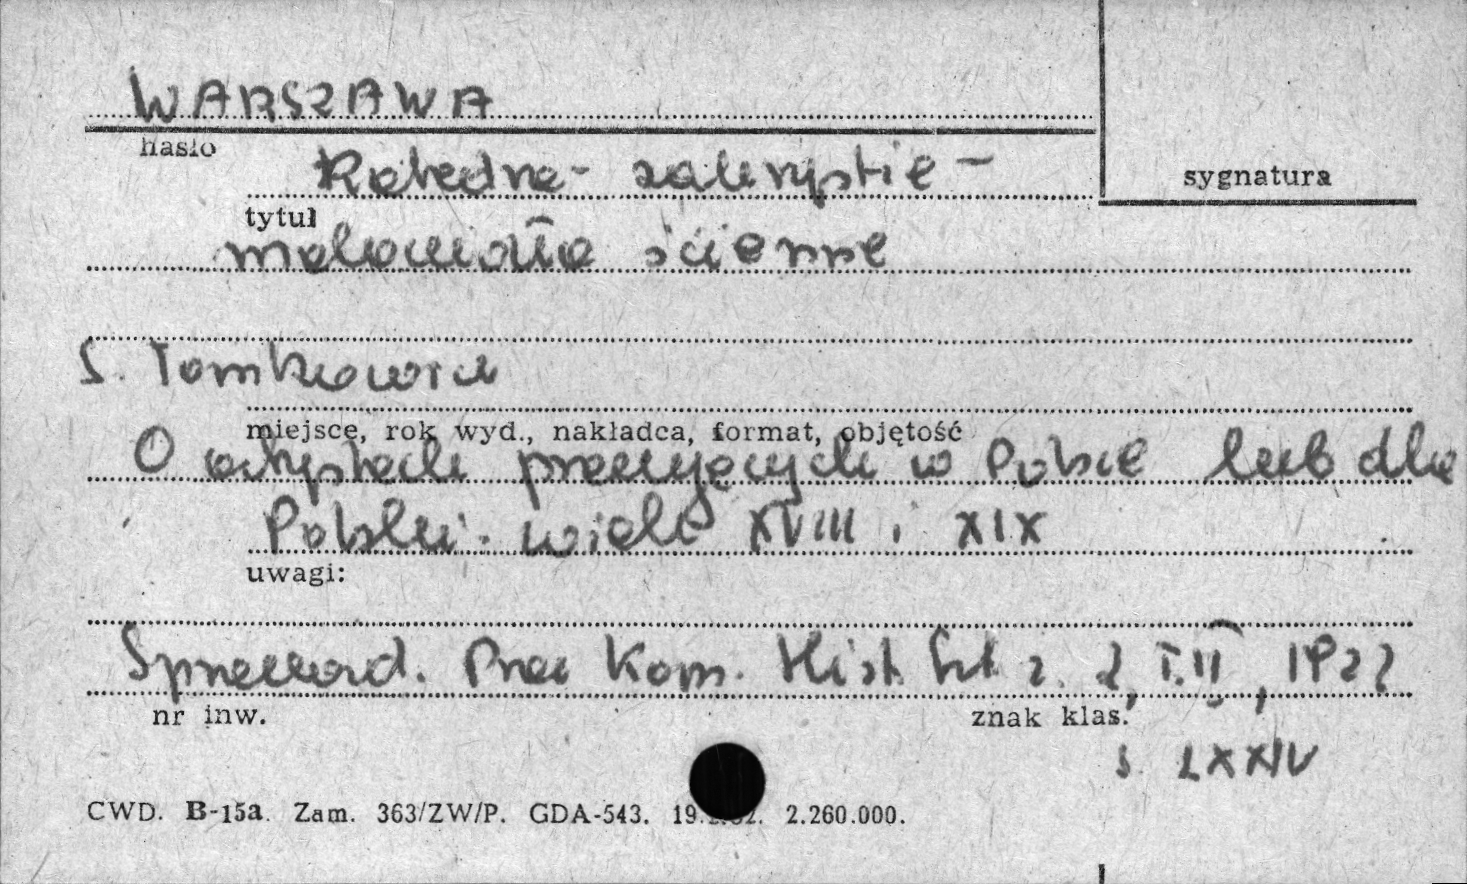 WARSZAWA
hasło
Katedra - zakrystie -
sygnatura
tytuł
malowidła ścienne
S. Tomkowicz
miejsce, rok wyd., nakładca, format, objętość
O artystach pracujących w Polsce lub dla
Polski. wiek XVIII i XIX
uwagi:
Sprawozd. Prac Kom. Hist. Szt. z. 2, T.II, 1922
nr inw.
znak klas.
s. LXXIV
CWD. B-15a. Zam. 363/ZW/P. GDA-543. 2.260.000.